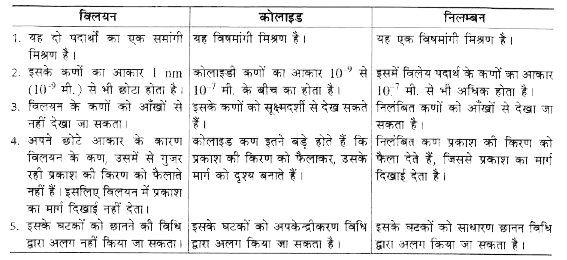 विलयन
कोलाइड
निलम्बन
1. यह दो पदार्थों का एक समांगी
मिश्रण है।
यह विषमांगी मिश्रण है।
यह एक विषमांगी मिश्रण है।
2. इसके कणों का आकार 1 nm
(10⁻⁹ मी.) से भी छोटा होता है।
कोलाइडी कणों का आकार 10⁻⁹ से
10⁻⁷ मी. के बीच का होता है।
इसमें विलेय पदार्थ के कणों का आकार
10⁻⁷ मी. से भी अधिक होता है।
3. विलयन के कणों को आँखों से
नहीं देखा जा सकता।
इसके कणों को सूक्ष्मदर्शी से देख सकते
हैं।
निलंबित कणों को आँखों से देखा जा
सकता है।
4. अपने छोटे आकार के कारण
विलयन के कण, उसमें से गुजर
रही प्रकाश की किरण को फैलाते
नहीं हैं। इसलिए विलयन में प्रकाश
का मार्ग दिखाई नहीं देता।
कोलाइड कण इतने बड़े होते हैं कि
प्रकाश की किरण को फैलाकर, उसके
मार्ग को दृश्य बनाते हैं।
निलंबित कण प्रकाश की किरण को
फैला देते हैं, जिससे प्रकाश का मार्ग
दिखाई देता है।
5. इसके घटकों को छानने की विधि
द्वारा अलग नहीं किया जा सकता।
इसके घटकों को अपकेन्द्रीकरण विधि
द्वारा अलग किया जा सकता है।
इसके घटकों को साधारण छानन विधि
द्वारा अलग किया जा सकता है।